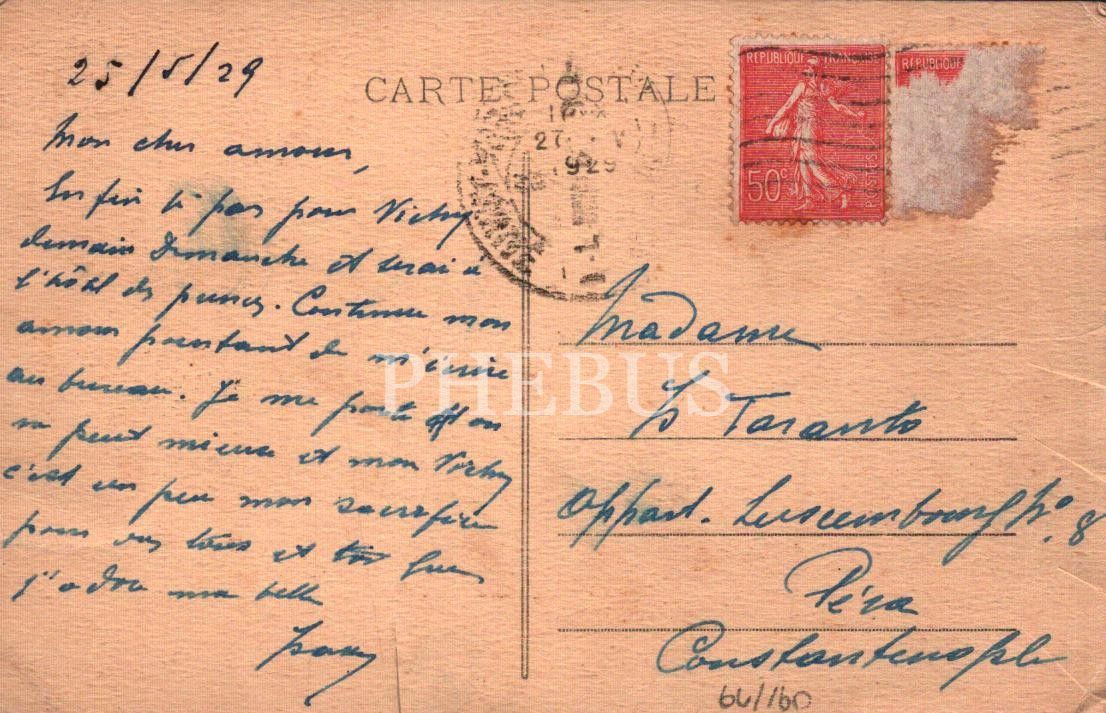 25/5/29
CARTE POSTALE
RÉPUBLIQUE FRANÇAISE
50c
POSTES
RÉPUBLIQUE
27
1929
Mon cher amour,
Enfin je pars pour Vichy
demain Dimanche et serai à
l'hôtel des princes. Continue mon
amour pourtant de m'écrire
au bureau. Je me porte on
ne peut mieux et mon Vichy
c'est un peu mon sacrifice
pour vous tous et
j'adore ma belle
PHEBUS
Madame
Taranto
Appart. Luxembourg No. 8
Péra
Constantinople
64/160